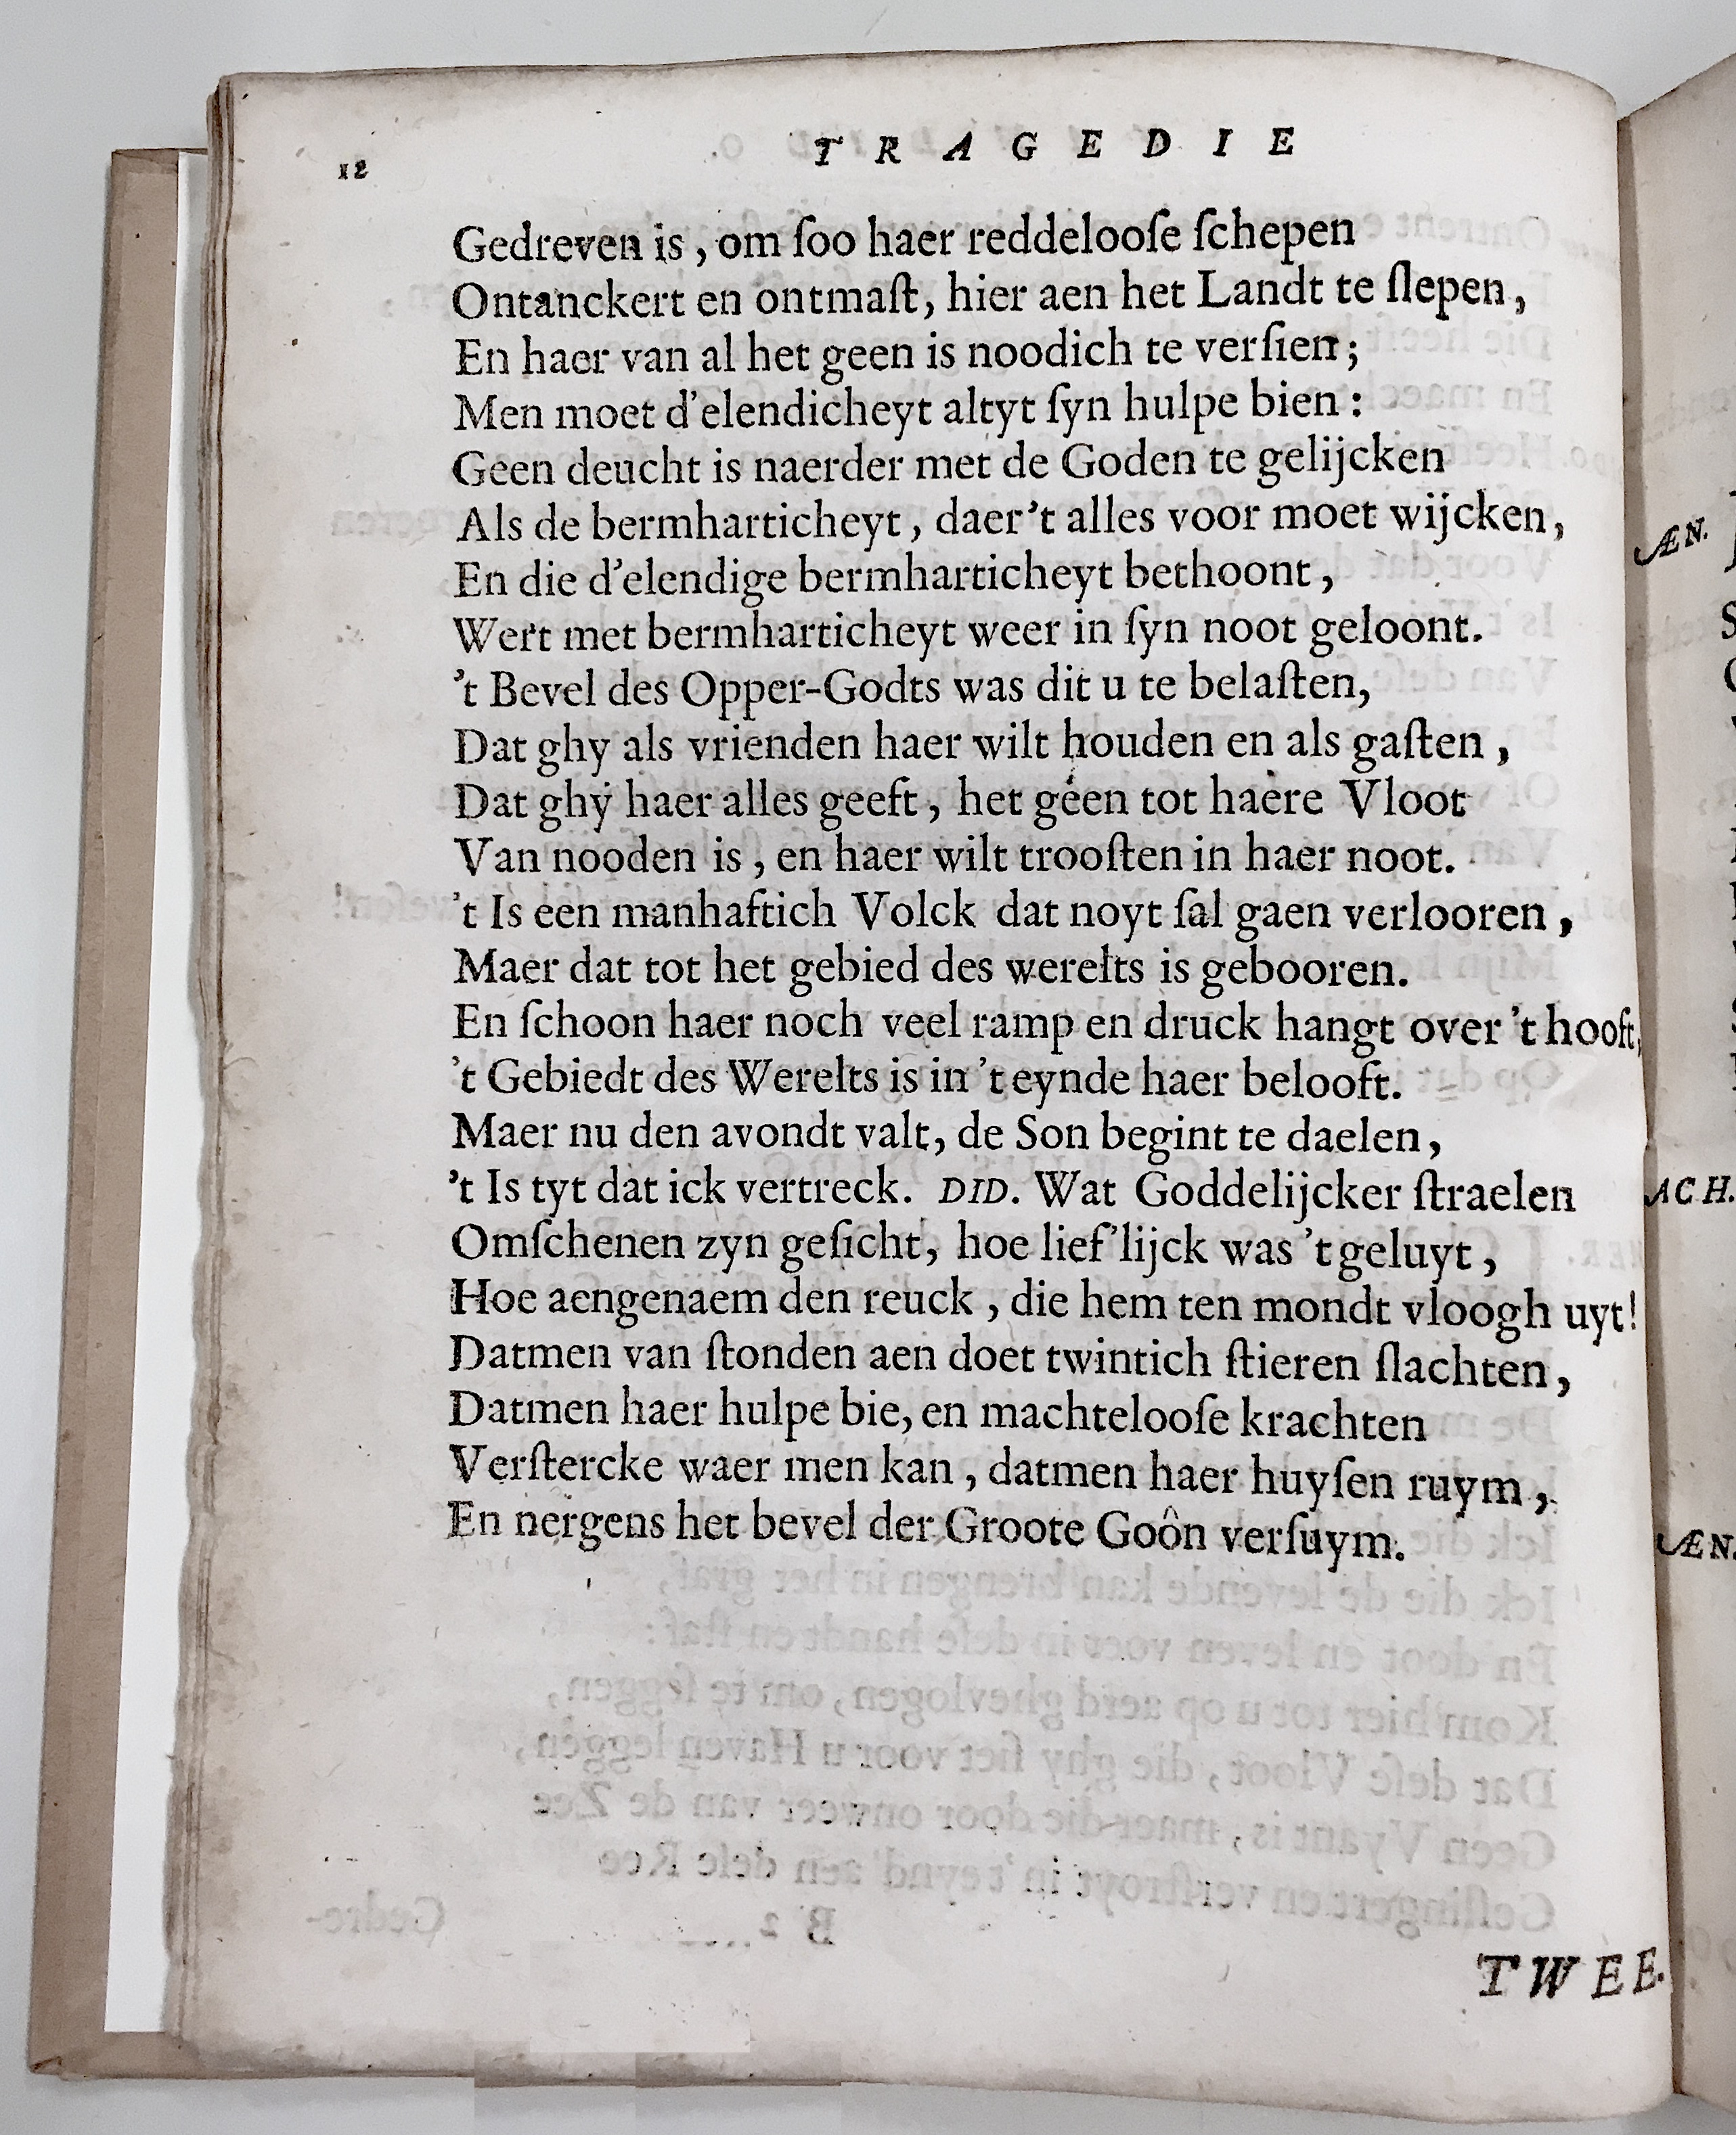 12
TRAGEDIE
Gedreven is, om ſoo haer reddelooſe ſchepen
Ontanckert en ontmaſt, hier aen het Landt te ſlepen,
En haer van al het geen is noodich te verſien;
Men moet d'elendicheyt altyt ſyn hulpe bien:
Geen deucht is naerder met de Goden te gelijcken
Als de bermharticheyt, daer't alles voor moet wijcken,
En die d'elendige bermharticheyt bethoont,
Wert met bermharticheyt weer in ſyn noot geloont.
't Bevel des Opper-Godts was dit u te belaſten,
Dat ghy als vrienden haer wilt houden en als gaſten,
Dat ghy haer alles geeft, het geen tot haere Vloot
Van nooden is, en haer wilt trooſten in haer noot.
't Is een manhaftich Volck dat noyt ſal gaen verlooren,
Maer dat tot het gebied des werelts is gebooren.
En ſchoon haer noch veel ramp en druck hangt over 't hooft,
't Gebiedt des Werelts is in 't eynde haer belooft.
Maer nu den avondt valt, de Son begint te daelen,
't Is tyt dat ick vertreck. DID. Wat Goddelijcker ſtraelen
Omſchenen zyn geſicht, hoe lief'lijck was 't geluyt,
Hoe aengenaem den reuck, die hem ten mondt vloogh uyt!
Datmen van ſtonden aen doet twintich ſtieren ſlachten,
Datmen haer hulpe bie, en machtelooſe krachten
Verſtercke waer men kan, datmen haer huyſen ruym,
En nergens het bevel der Groote Goôn verſuym.
TWEE.
ÆN.
ACH.
ÆN.